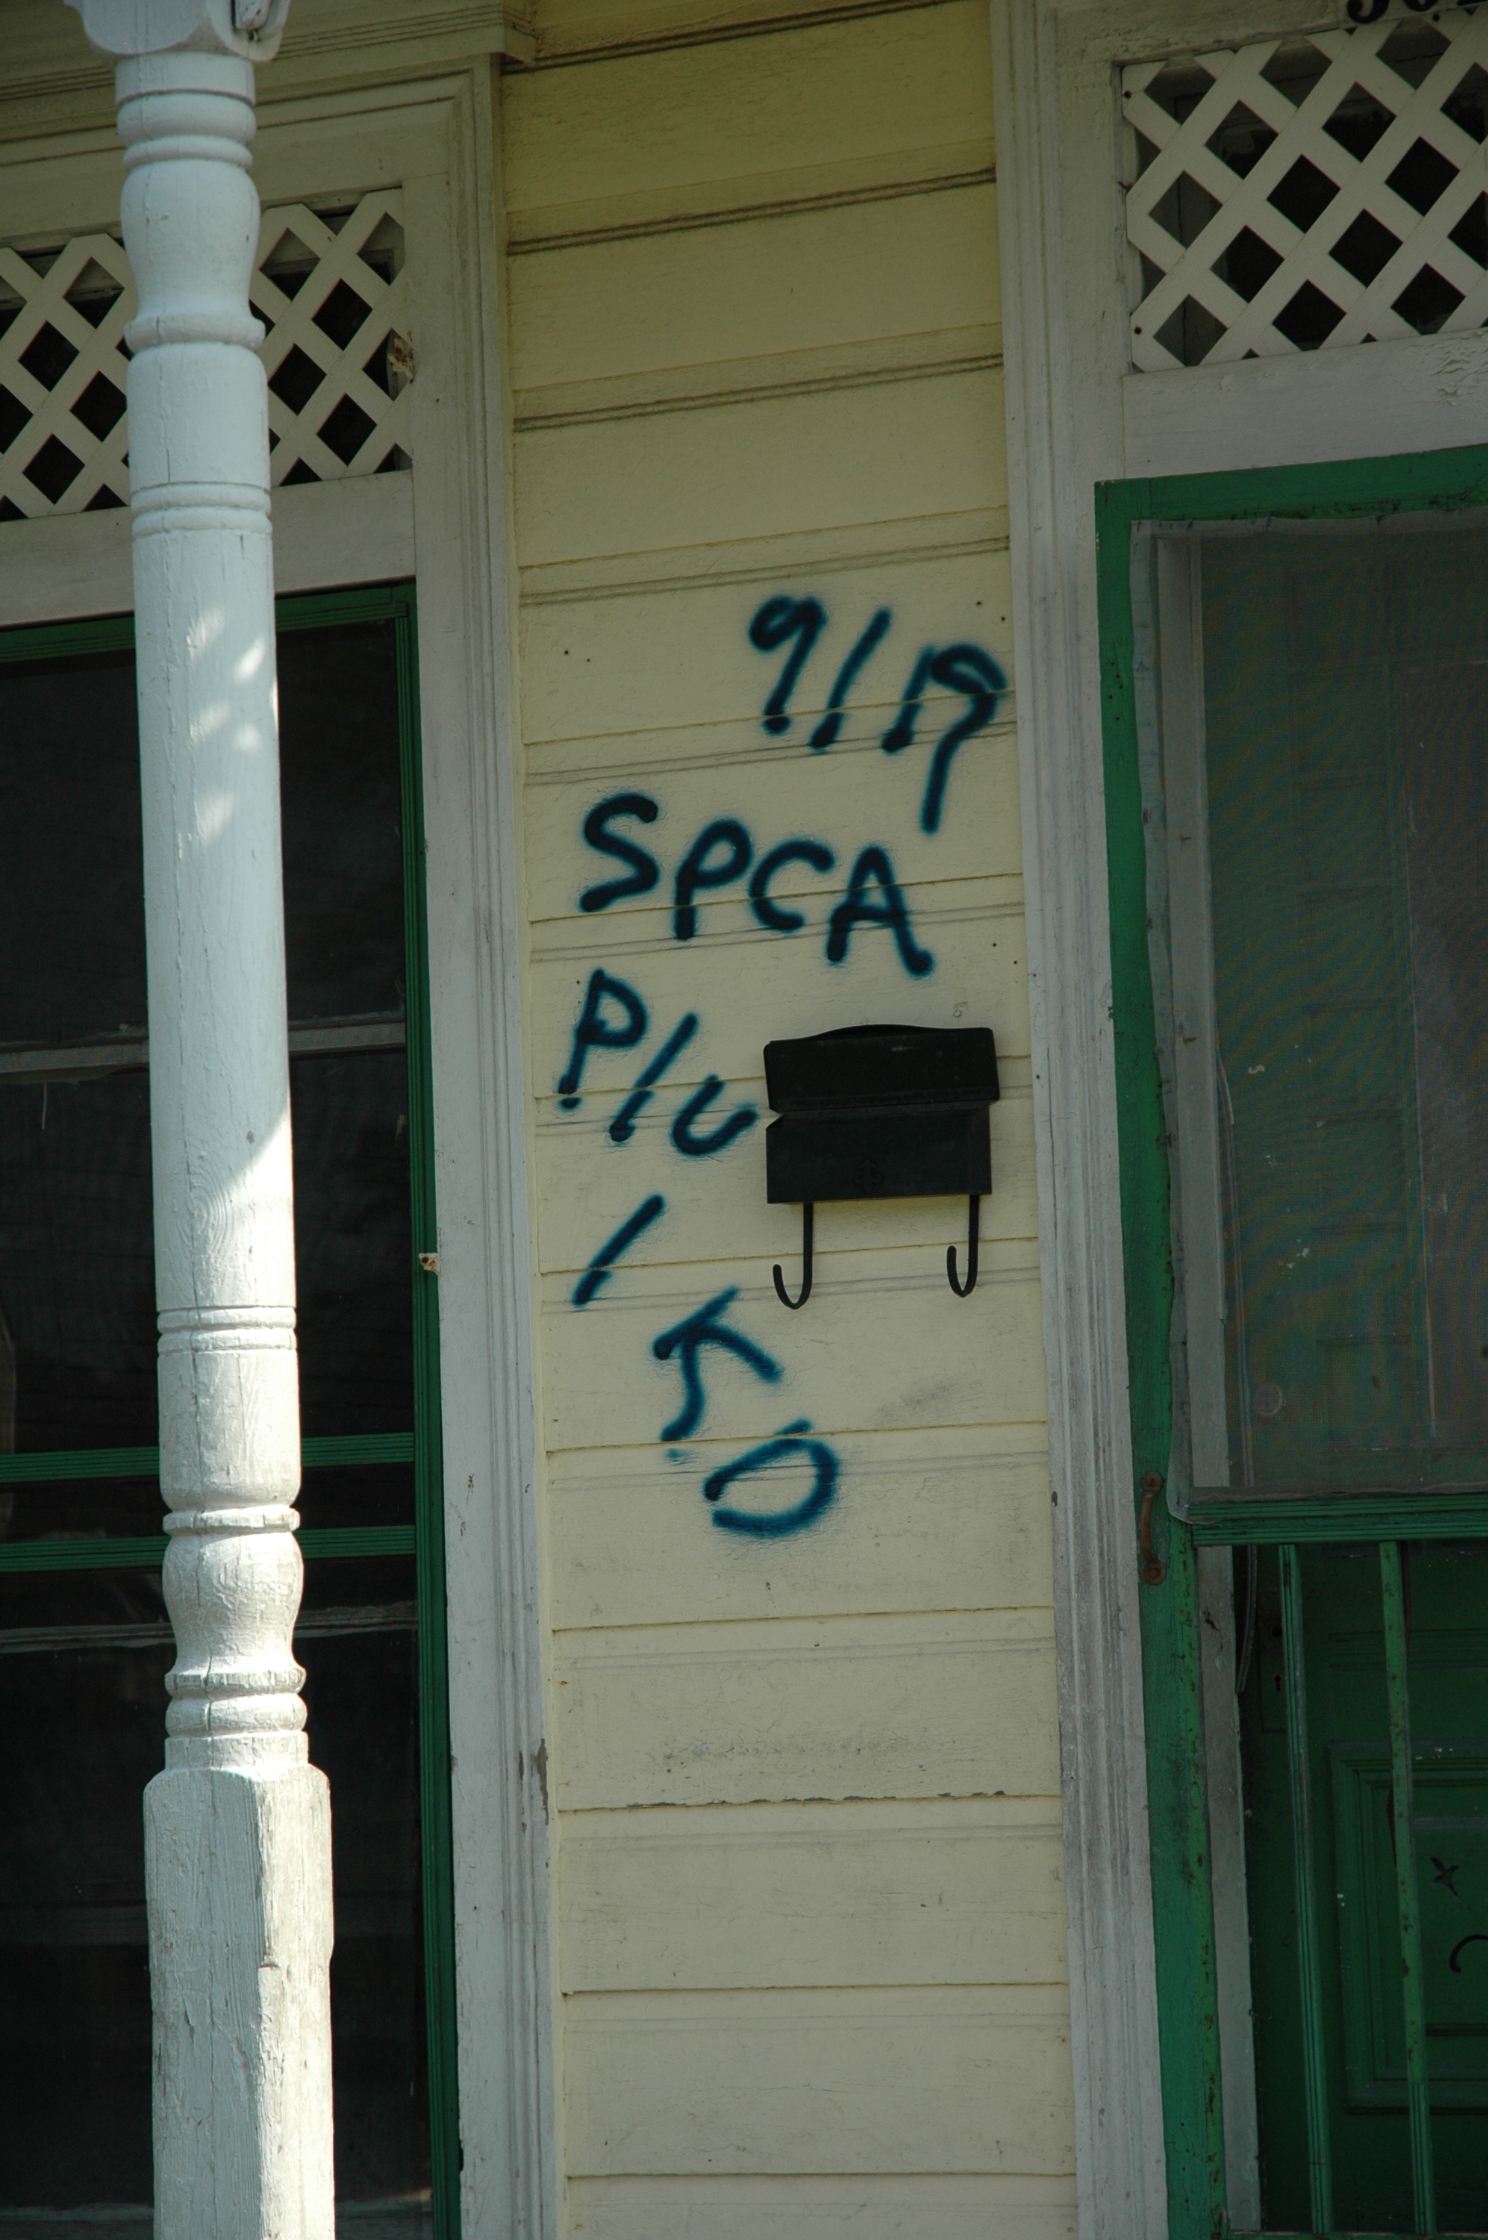 9/19
SPCA
P/U
1 K